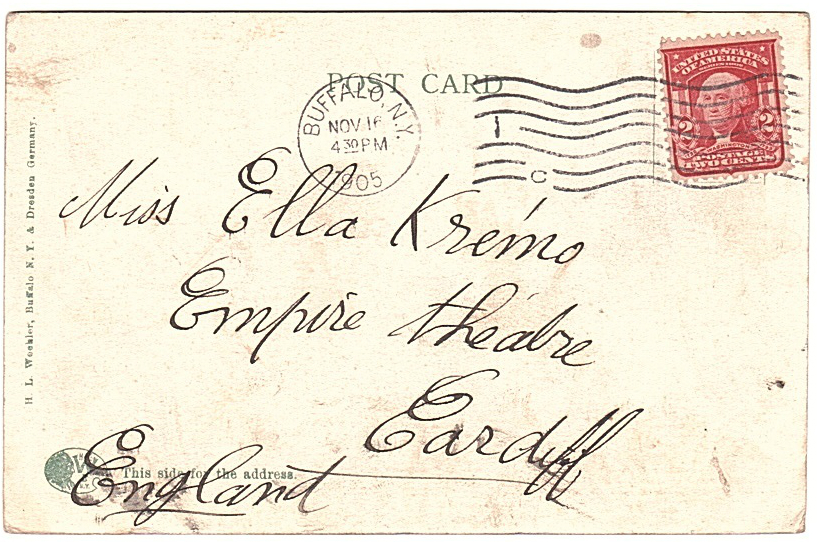 POST CARD
BUFFALO, N.Y.
NOV 16
4 30 PM
1905
1
C
UNITED STATES
OF AMERICA
2 2
POSTAGE
TWO CENTS
Miss Ella Krémo
Empire théâtre
Cardiff
England
This side for the address.
H. L. Woehler, Buffalo N. Y. & Dresden Germany.